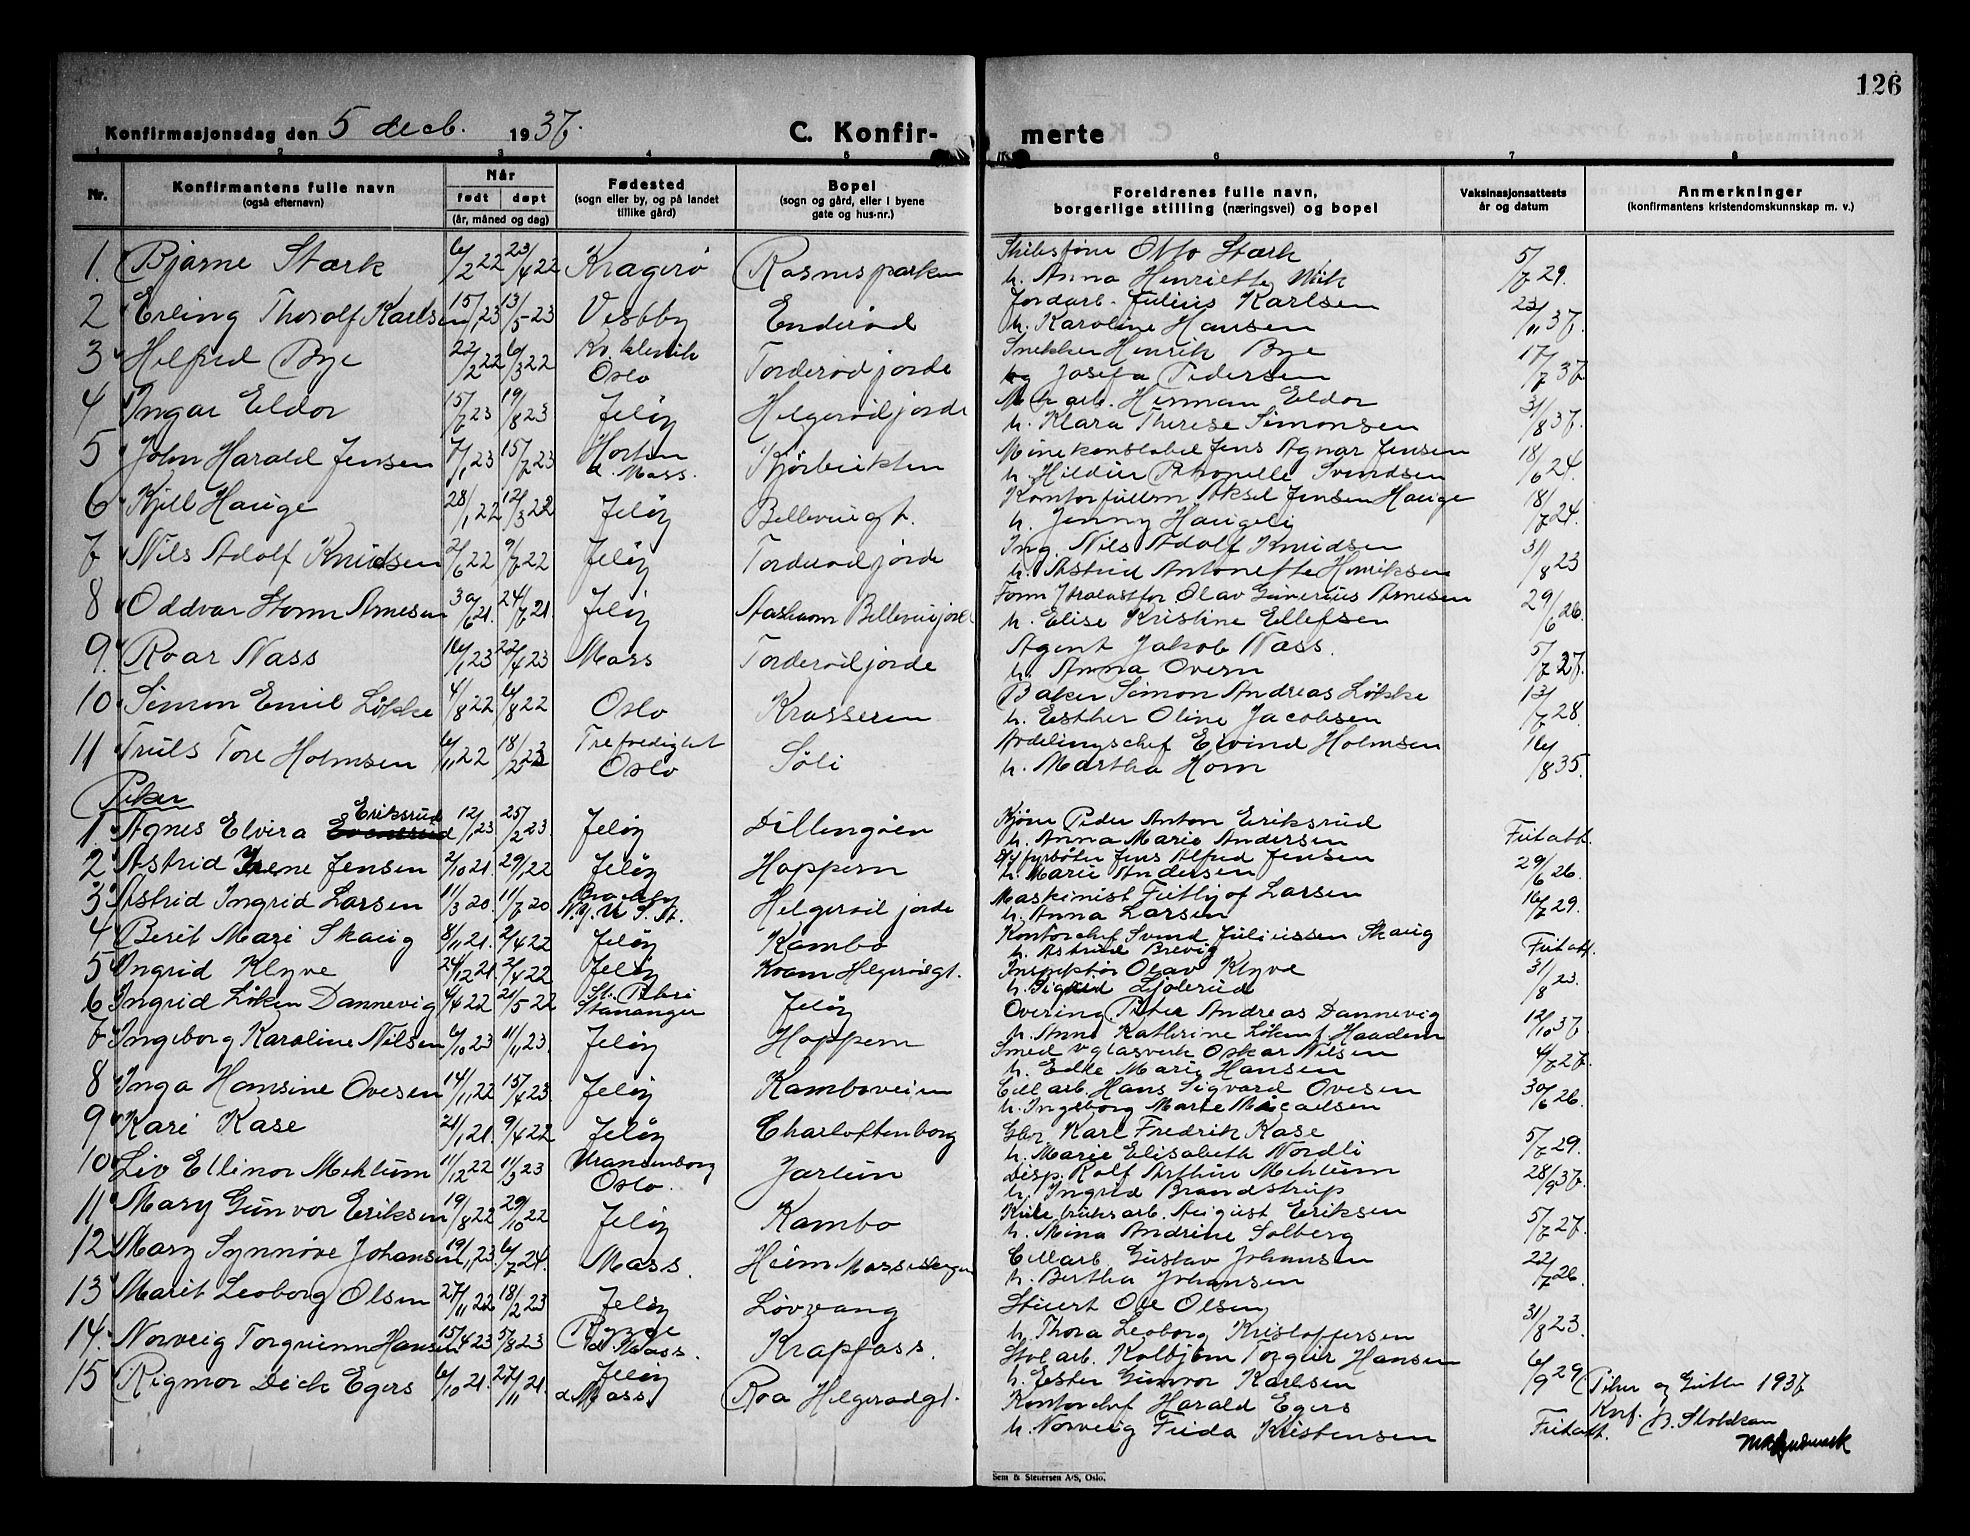 126
Konfirmasjonsdag den 5 decb. 1937. C. Konfir- merte
1 2 3 4 5 6 7 8
Nr. Konfirmantens fulle navn (også efternavn) Når født døpt (år, måned og dag) Fødested (sogn eller by, og på landet tillike gård) Bopel (sogn og gård, eller i byene gate og hus-nr.) Foreldrenes fulle navn, borgerlige stilling (næringsvei) og bopel Vaksinasjonsattests år og datum Anmerkninger (konfirmantens kristendomskunnskap m. v.)
1. Bjarne Stærk 6/2 22 23/4 22 Kragerø Rasmusparken Otto Stærk
h. Anna Henriette Wiik 5/7 29.
2 Erling Thoralf Karlsen 15/1 23 13/5 23 Vestby Enderød Jordarb. Julius Karlsen
h. Karoline Hansen 23/11 37.
3 Hilfred Bye 22/2 22 6/3 22 Kv. klinik Oslo Torderødjorde Snekker Henrik Bye
og Josefa Pedersen 17/7 37
4 Ingar Eldor 15/6 23 19/8 23 Jeløy Helgerødjorde M. arb. Herman Eldor
h. Klara Therese Simonsen 31/8 37.
5 John Harald Jensen 7/1 23 15/7 23 Horten d. Moss. Kjørbukten Minekonstabel Jens Agnar Jensen
h. Hildur Petronelle Svendsen 18/6 24.
6 Kjell Hauge 28/1 22 12/3 22 Jeløy Bellevuegt. Kontorfullm Aksel Jensen Hauge
h. Jenny Haugeli 18/7 24.
7 Nils Adolf Knudsen 2/6 22 9/7 22 Jeløy Torderødjorde Ing. Nils Adolf Knudsen
h. Astrid Antonette Henriksen 31/8 23
8 Oddvar Storm Arnesen 30/6 21. 24/7 21. Jeløy Aasheim Bellevuejorde Olav Gunerius Arnesen
h. Elise Kristine Ellefsen 29/6 26.
9. Roar Næss 16/1 23 22/4 23 Moss Torderødjorde Agent Jakob Næss.
h. Anna Overn 5/7 27.
10 Simon Emil Løkke 4/8 22 6/8 22 Oslo Krosseren Baker Simon Andreas Løkke
h. Esther Oline Jacobsen 13/7 28.
11 Truls Tore Holmsen 6/11 22 18/2 23 Trefoldighet Oslo Söli Avdelingschef Eivind Holmsen
h. Martha Hom 16/8 35.
Piker
1. Agnes Elvira Eriksrud 12/1 23 25/2 23. Jeløy Dillingøen Kjører Peder Anton Eriksrud
h. Anna Marie Andersen Fritatt.
2 Astrid Irene Jensen 2/10 21. 29/1 22 Jeløy Hoppern fyrbøter Jens Alfred Jensen
h. Marie Andersen 29/6 26.
3 Astrid Ingrid Larsen 11/3 20. 11/7 20 Brooklyn N.Y. U.S.A. Helgerød jorde Maskinist Fritjof Larsen
h. Anna Larsen 16/7 29.
4 Berit Mari Skaug 8/11 21. 2/4 22 Jeløy Kambo Kontorchef Svend Juliussen Skaug
h. Astrid Brevig Fritatt.
5 Ingrid Klyve 24/12 21 2/4 22 Jeløy Kvam Helgerødgt. Inspektør Olav Klyve
h. Sigrid Ljølerud 31/8 23.
6 Ingrid Løken Dannevig 4/4 22 21/5 22 St. Petri Stavanger Jeløy Overing. Peter Andreas Dannevig
h. Anne Kathrine Løken f. Haadem 12/10 37.
7 Ingeborg Karoline Nilsen 6/10 23 11/11 23. Jeløy Hoppern Smed v glasverk Oskar Nilsen
h. Edle Marie Hansen 4/7 27.
8 Inga Hansine Ovesen 14/11 22 15/4 23 Jeløy Kamboveien Cell arb. Hans Sigvard Ovesen
h. Ingeborg Marie Micaelsen 30/6 26.
9 Kari Kase 21/1 21. 9/4 22 Jeløy Charlottenborg Gbr. Karl Fredrik Kase
h. Marie Elisabeth Nordli 5/7 29.
10 Liv Ellinor Mehlum 11/12 22 11/3 23 Uranienborg Oslo. Jarlun Disp. Rolf Arthur Mehlum
h. Ingrid Brandstrup 28/9 37.
11 Mary Gunvor Eriksen 19/8 22 29/10 22 Jeløy Kambo arb. August Eriksen
h. Mina Andrine Solberg 5/7 27.
12 Mary Synnøve Johansen 19/11 23. 6/7 24. Moss. Heim Mosseskogen Cellarb. Gustav Johansen
h. Bertha Johansen 22/7 26.
13 Marit Leoborg Olsen 27/11 22 18/2 23 Jeløy Lövvang Stuert Ole Olsen
h. Thora Leoborg Kristoffersen 31/8 23.
14. Norveig Torgunn Hansen 15/4 23 5/8 23 Rygge d Moss. Krapfoss. arb. Kolbjørn Torgeir Hansen
h. Ester Gunvor Karlsen 6/9 29
15 Rigmor Dick Egers 6/10 21. 27/11 21. Jeløy d Moss. Roa Helgerødgt. Kontorchef Harald Egers
h. Norveig Frida Kristensen Fritatt.
Piker og Gutter 1937
Konf. B. Stoltkan
Sem & Stenersen A/S, Oslo.